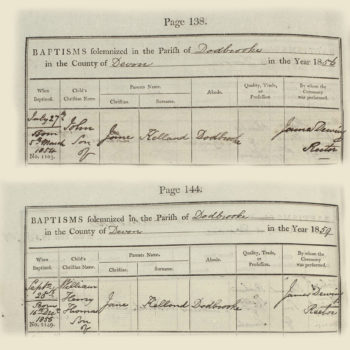 Page 138.
BAPTISMS solemnized in the Parish of Dodbrooke
in the County of Devon in the Year 1856
When Baptized. Child's Christian Name. Parents Name. Christian. Surname. Abode. Quality, Trade, or Profession. By whom the Ceremony was performed.
July 27th Born 5th March 1854 John Son of Jane Kelland Dodbrooke James Dewing Rector
Page 144.
BAPTISMS solemnized in the Parish of Dodbrooke
in the County of Devon in the Year 1859
When Baptized. Child's Christian Name. Parents Name. Christian. Surname. Abode. Quality, Trade, or Profession. By whom the Ceremony was performed.
Septr 28th Born William Henry Thomas Son of Jane Kelland Dodbrooke James Dewing Rector